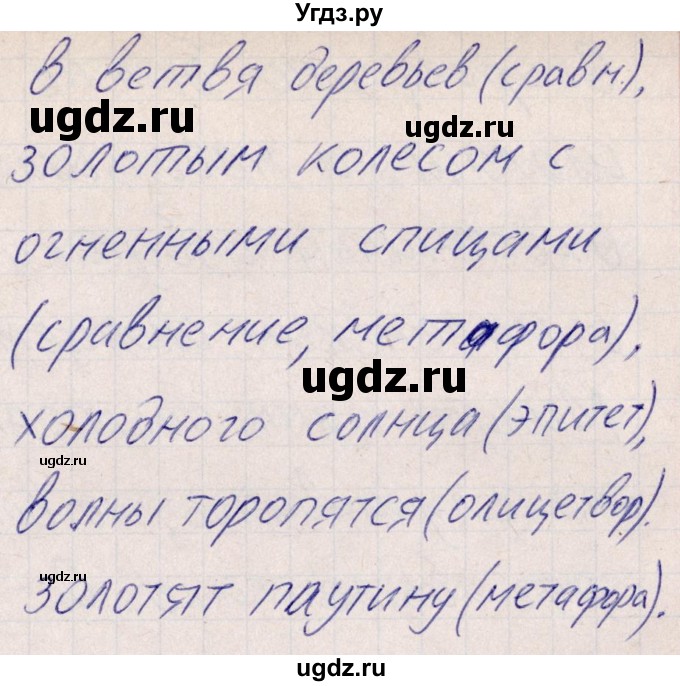 Угдз.ру
в ветвя деревьев (сравн.),
ugdz.ru
ugdz.ru
золотым колесом с
огненными спицами
(сравнение, метафора),
ugdz.ru
холодного солнца (эпитет),
ugdz.ru
волны торопятся (олицетвор).
ugdz.ru
золотят паутину (метафора).
ugdz.ru